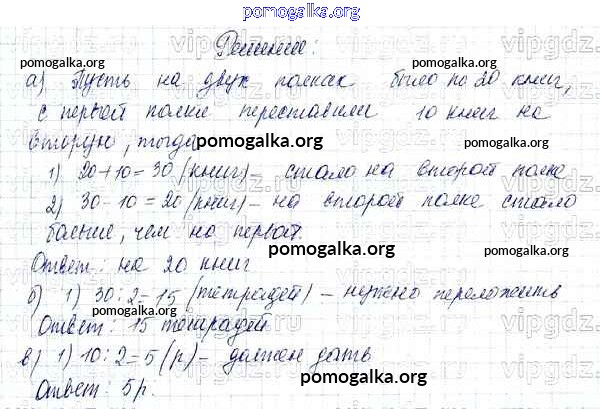 pomogalka.org
Решение:
а) Пусть на двух полках было по 20 книг,
с первой полки переставили 10 книг на
вторую, тогда
pomogalka.org
1) 20+10=30 (книг) – стало на второй полке
2) 30-10=20 (книг) – на второй полке стало
больше, чем на первой.
pomogalka.org
Ответ: на 20 книг
б) 1) 30:2=15 (тетрадей) – нужно переложить
pomogalka.org
Ответ: 15 тетрадей
в) 1) 10:2=5 (р) – должен дать
pomogalka.org
Ответ: 5р.